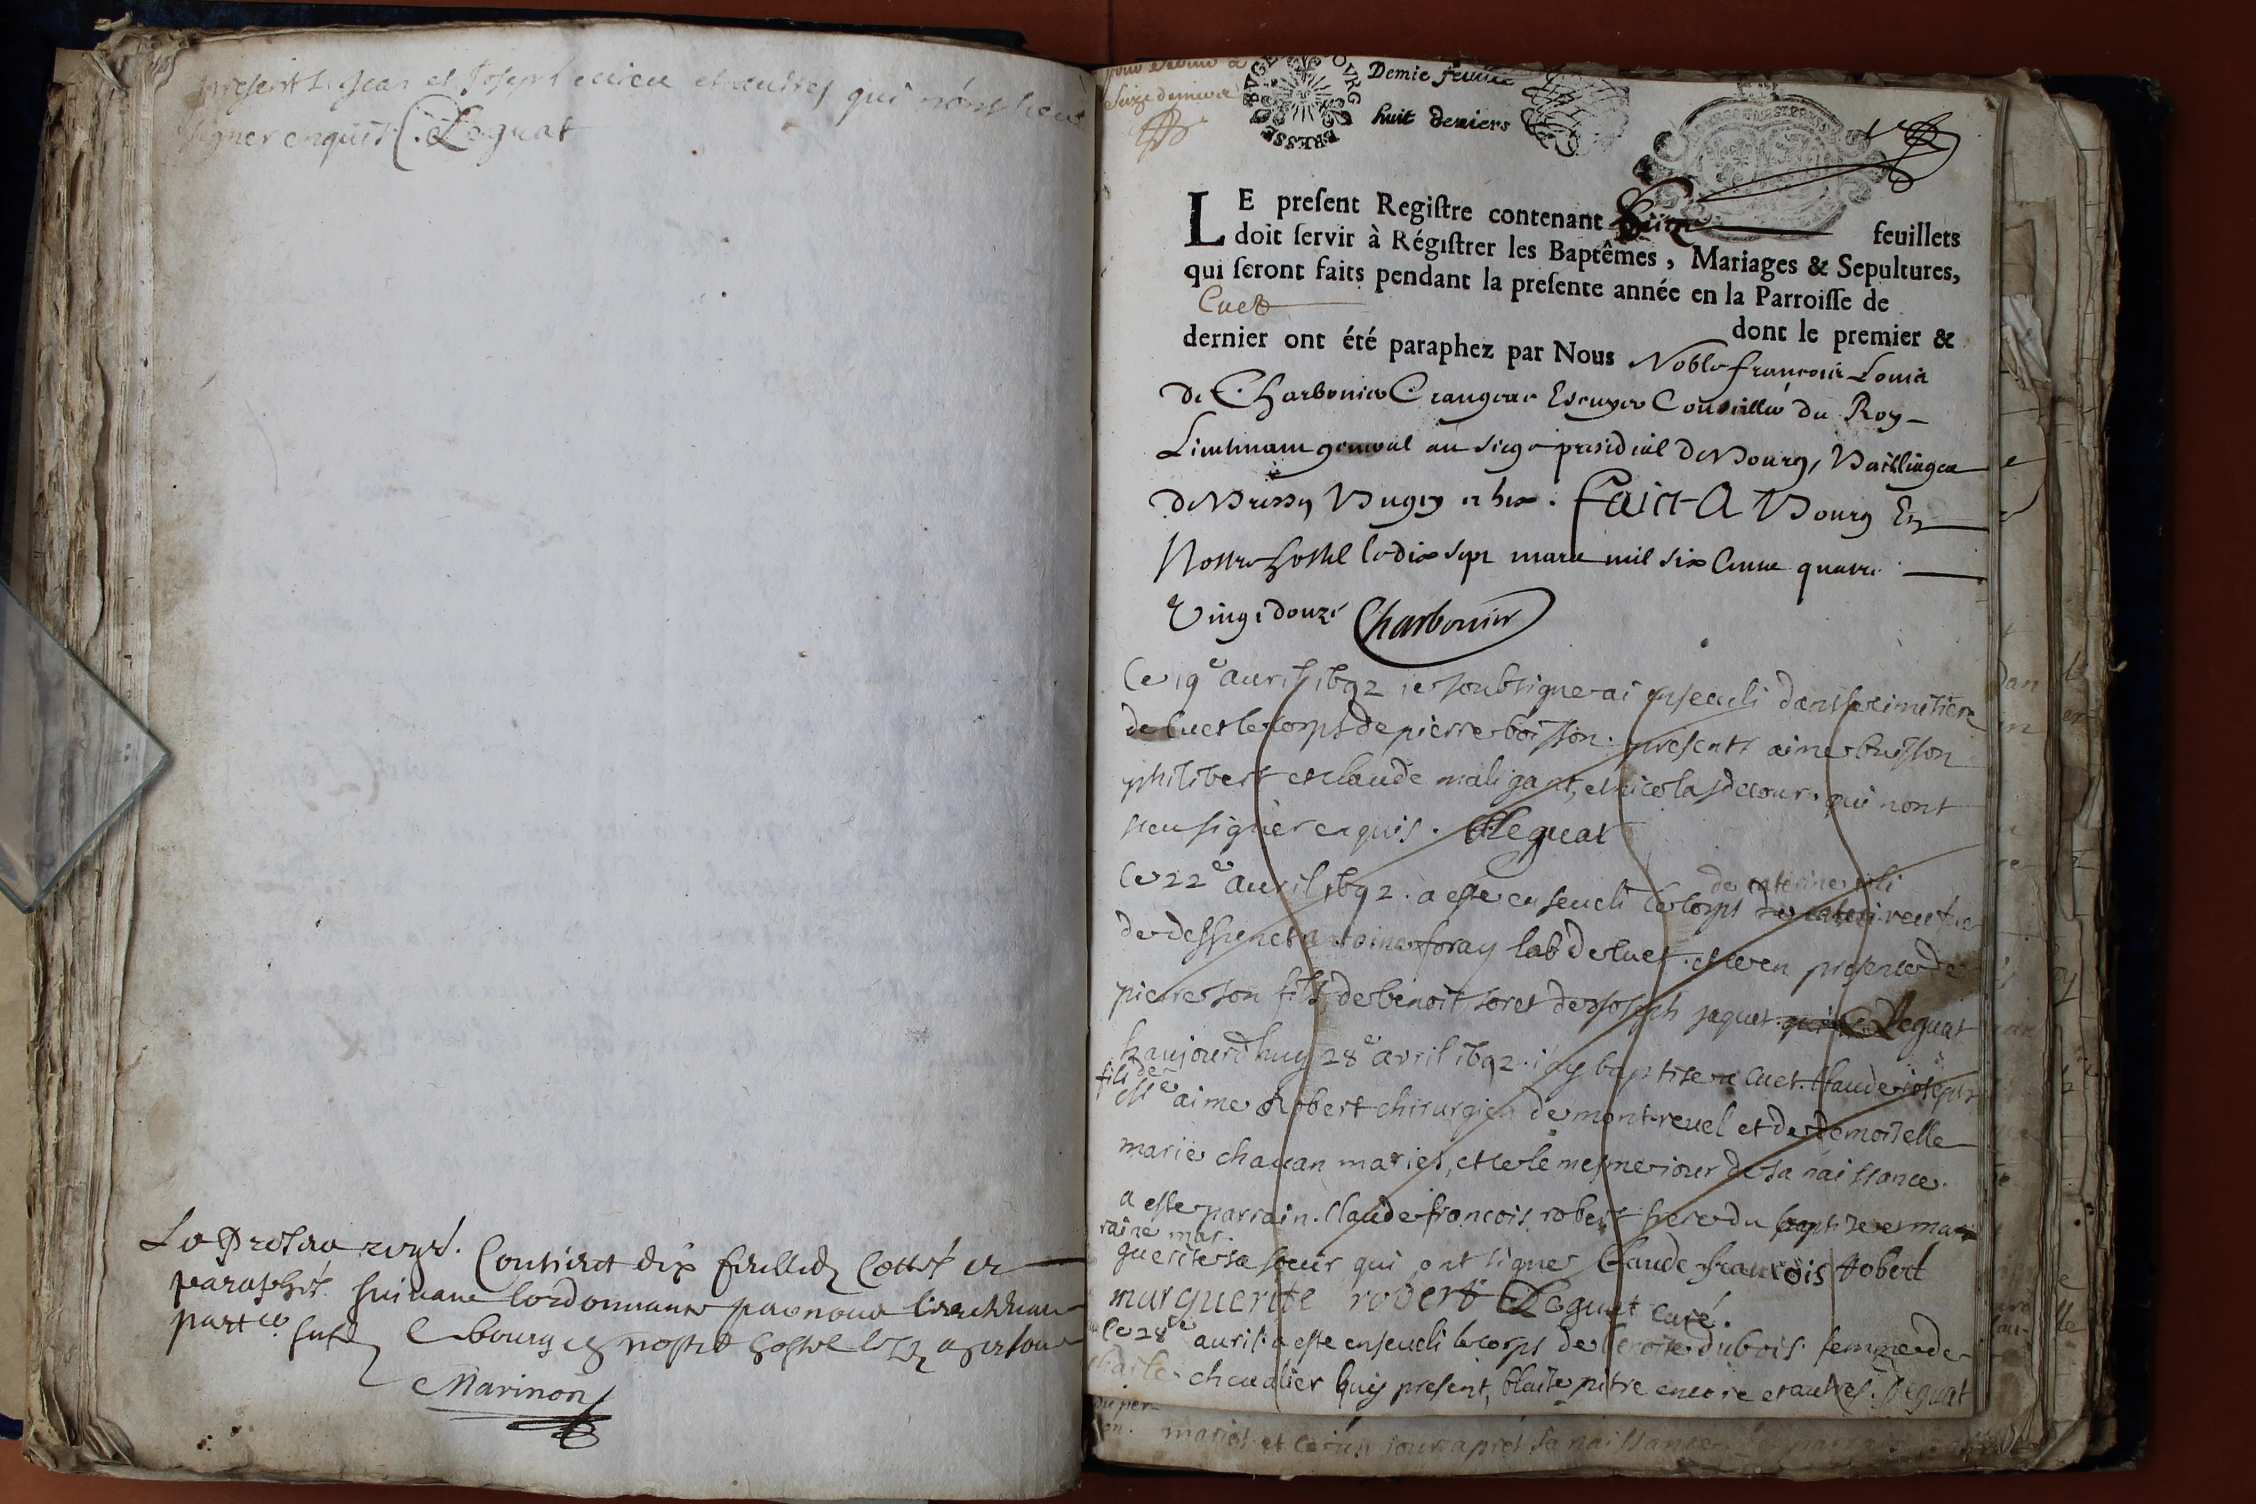 presents Jean et Joseph et autres qui n'ont sceu
signer enquis. C. Deguat
Le present regre. Contient dix feuillets cottés et
paraphés suivant lordonnance par nous
Marinon
seize deniers
Demie feuille
huit deniers
BRESSE BVGE BOVRG
LE preſent Regiſtre contenant feuillets
doit ſervir à Régiſtrer les Baptêmes, Mariages & Sepultures,
qui ſeront faits pendant la preſente année en la Parroiſſe de
Cuet dont le premier &
dernier ont été paraphez par Nous Noble francois Louis
De Charbonier Crangeac Escuyer Conseiller du Roy
Lieutenant general au siege presidial de Bourg, Bailliage
de Bresse Bugey et Gex. Faict A Bourg En
Nostre hostel le dix sept mars mil six Cents quatre
Vingt douze Charbonier
Ce 19e auril 1692 ie soubsigne ai enseueli dans le cimitiere
de Cuet le corps de pierre boisson. presents aime buisson
philibert et claude maligant, et nicolas decour. qui nont
sceu signer enquis. Deguat
Ce 22e auril 1692. a este enseueli le corps de caterine veufue
de deffunct antoine foray lab de Cuet. et ce en presence de
pierre son fils, de benoit soret de Joseph jaquet. Deguat
haujourdhuy 28e avril 1692. i'ay baptise a Cuet. Claude joseph
fils de
Me aime Robert chirurgien de montreuel et de demoiselle
marie chauan maries, et ce le mesme iour de sa naissance.
a este parrain. Claude francois robert frere du baptize et mar
raine mar.
guerite sa soeur qui ont signe Claude francois Robert
marguerite robert Deguat curé.
Ce 28e auril a este enseueli le corps de benoite dubois femme de
charle cheualier luy present, blaise pitre encore et autres. Deguat
maries et ce un iour apres sa naissance